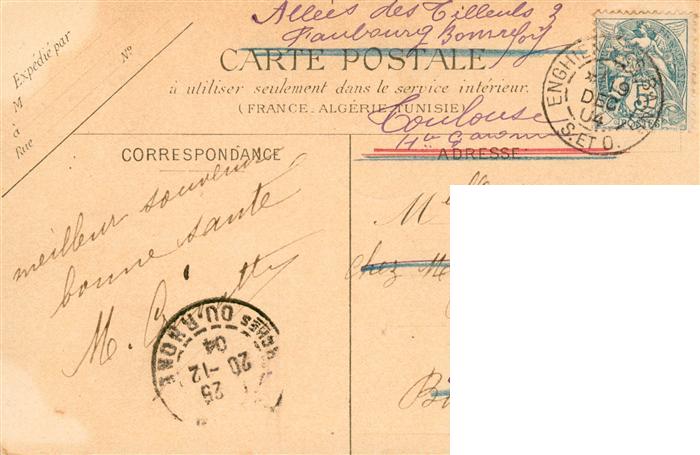 Allées des Tilleuls 3
Faubourg Bonnefoy
CARTE POSTALE
à utiliser seulement dans le service intérieur.
(FRANCE-ALGÉRIE-TUNISIE)
Toulouse
Hte Garonne
Expédié par
N°
M
à
Rue
ENGHIEN
19
DEC
04
S. ET O.
15
POSTES
CORRESPONDANCE
meilleur souvenir
bonne santé
M.
DU RHONE
25
20-12
04
ADRESSE
Mlle
chez M